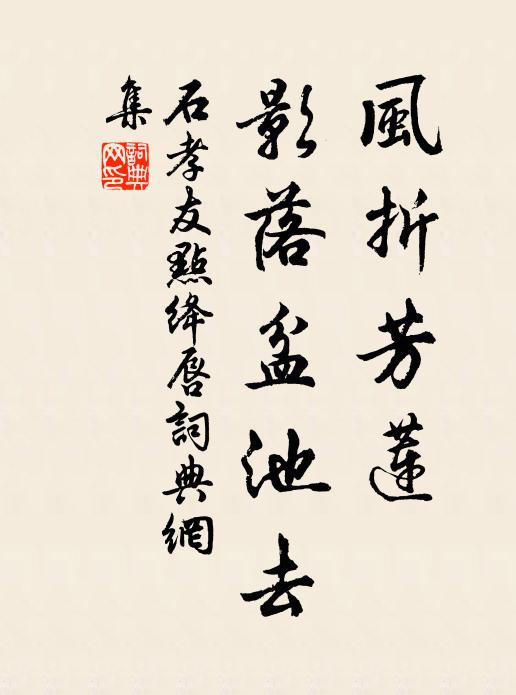 風折芳蓮
影落盆池去
石孝友點絳唇詞典網
集
詞典網印